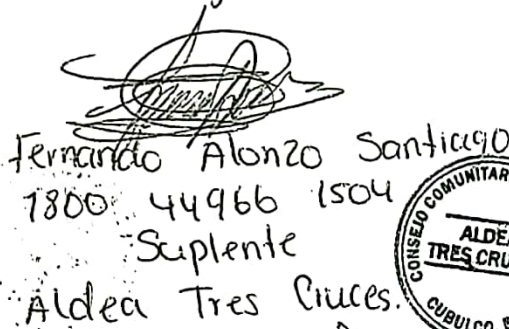 Fernando Alonzo Santiago
1800 44966 1504
Suplente
Aldea Tres Cruces.
CONSEJO COMUNITAR
ALDEA
TRES CRU
CUBULCO, B